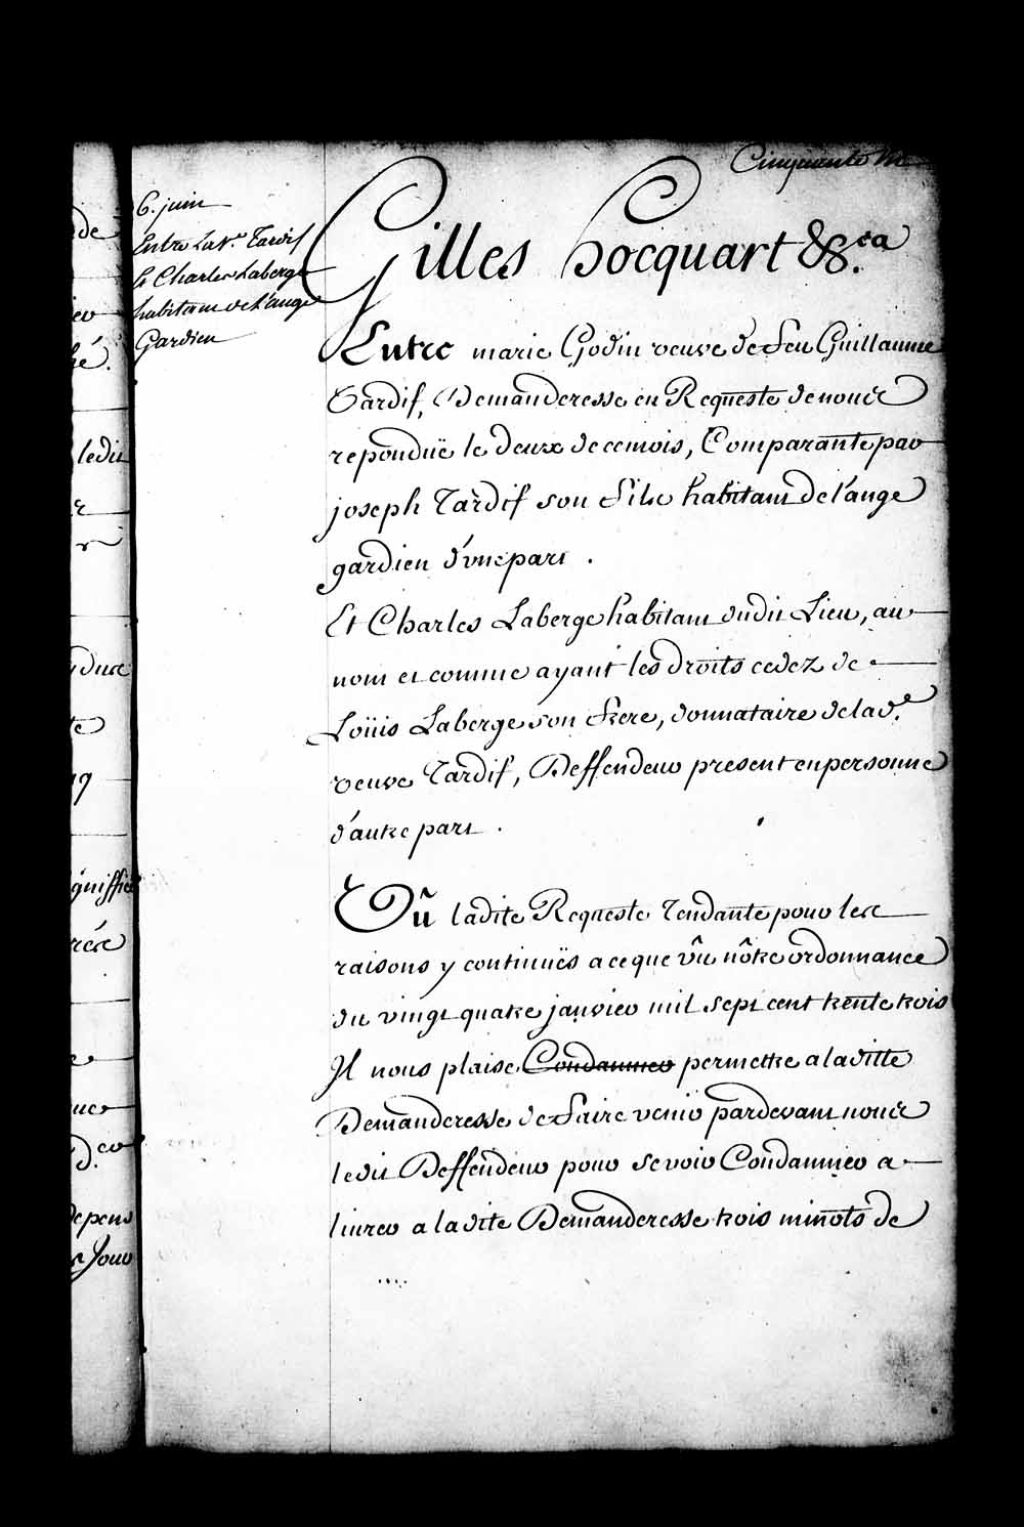 Cinquante
6. juin
Entre La Ve. Tardif
& Charles Laberge
habitant de L'ange
Gardien
Gilles hocquart &c.a
Entre marie Godin veuve de feu Guillaume
Tardif, Demanderesse en Requeste de nous
repondüe le deux de ce mois, Comparante par
joseph Tardif son fils habitant de l'ange
gardien d'une part .
Et Charles Laberge habitant dudit Lieu, au
nom et comme ayant les droits cedez de
Loüis Laberge son frere, donnataire de lad.e
veuve Tardif, Deffendeur present en personne
d'autre part .
Vû ladite Requeste Tendante pour les
raisons y continuës a ce que vû nôtre ordonnance
du vingt quatre janvier mil sept cent trente trois
Il nous plaise Condamner permettre a laditte
Demanderesse de faire venir pardevant nous
ledit Deffendeur pour se voir Condamner a
livrer a la dite Demanderesse trois minots de
de
ledit
duce
te
quiffié
ue
d.
depens
Jour